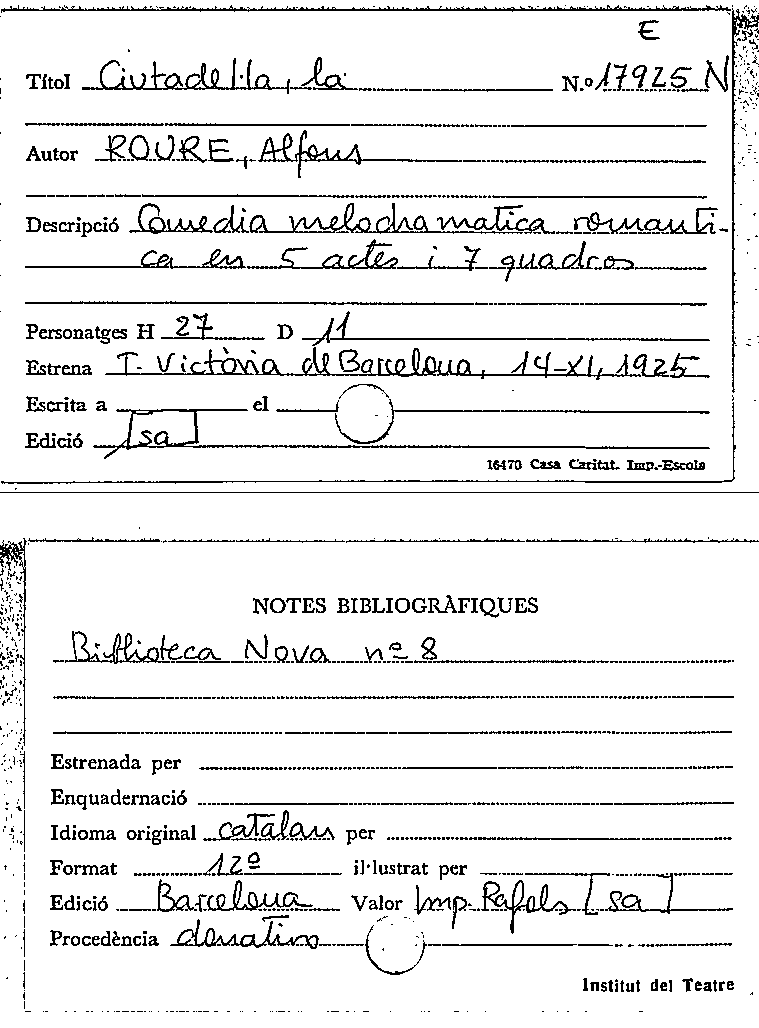 E
Títol Ciutadel·la, la N.º 17925 N
Autor ROURE, Alfons
Descripció Comedia melodramatica romanti-
ca en 5 actes i 7 quadros
Personatges H 27 D 11
Estrena T. Victòria de Barcelona, 14-XI, 1925
Escrita a el
Edició [sa]
16470 Casa Caritat. Imp.-Escola
NOTES BIBLIOGRÀFIQUES
Biblioteca Nova nº 8
Estrenada per
Enquadernació
Idioma original catalan per
Format 12º il·lustrat per
Edició Barcelona Valor Imp. Rafols [sa]
Procedència donativo
Institut del Teatre